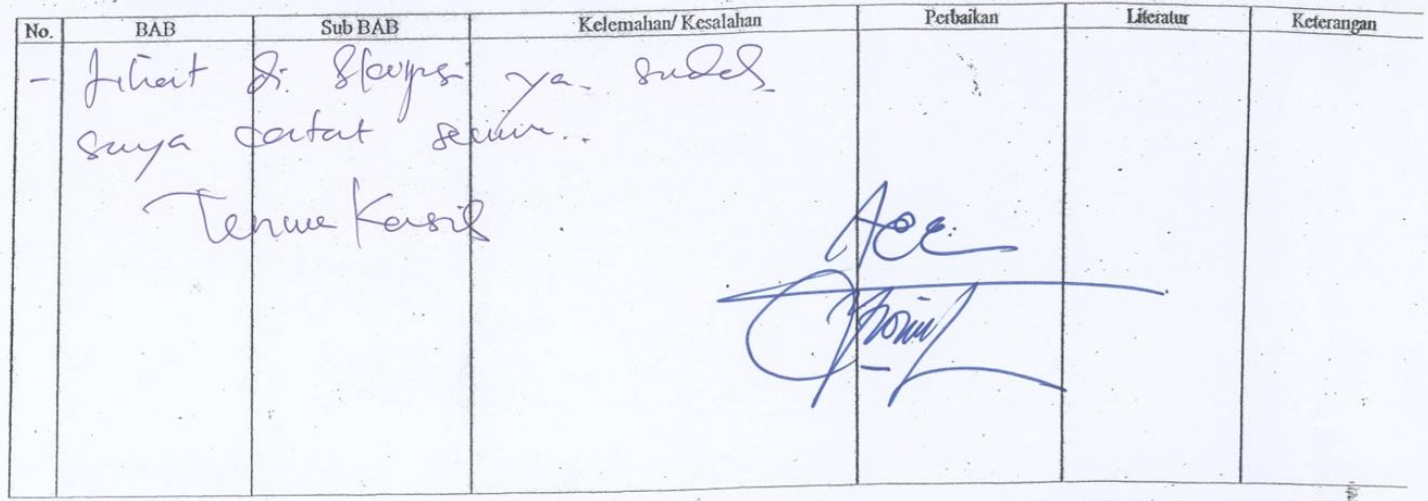 No. BAB Sub BAB Kelemahan/ Kesalahan Perbaikan Literatur Keterangan
- Lihat di Skripsi ya sudah
saya catat semua..
Terima Kasih
Acc